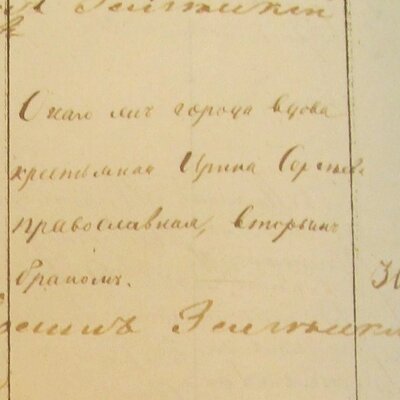 Онаго жъ города вдова
крестьянка Ирина Сергѣева
православная, вторымъ
бракомъ.